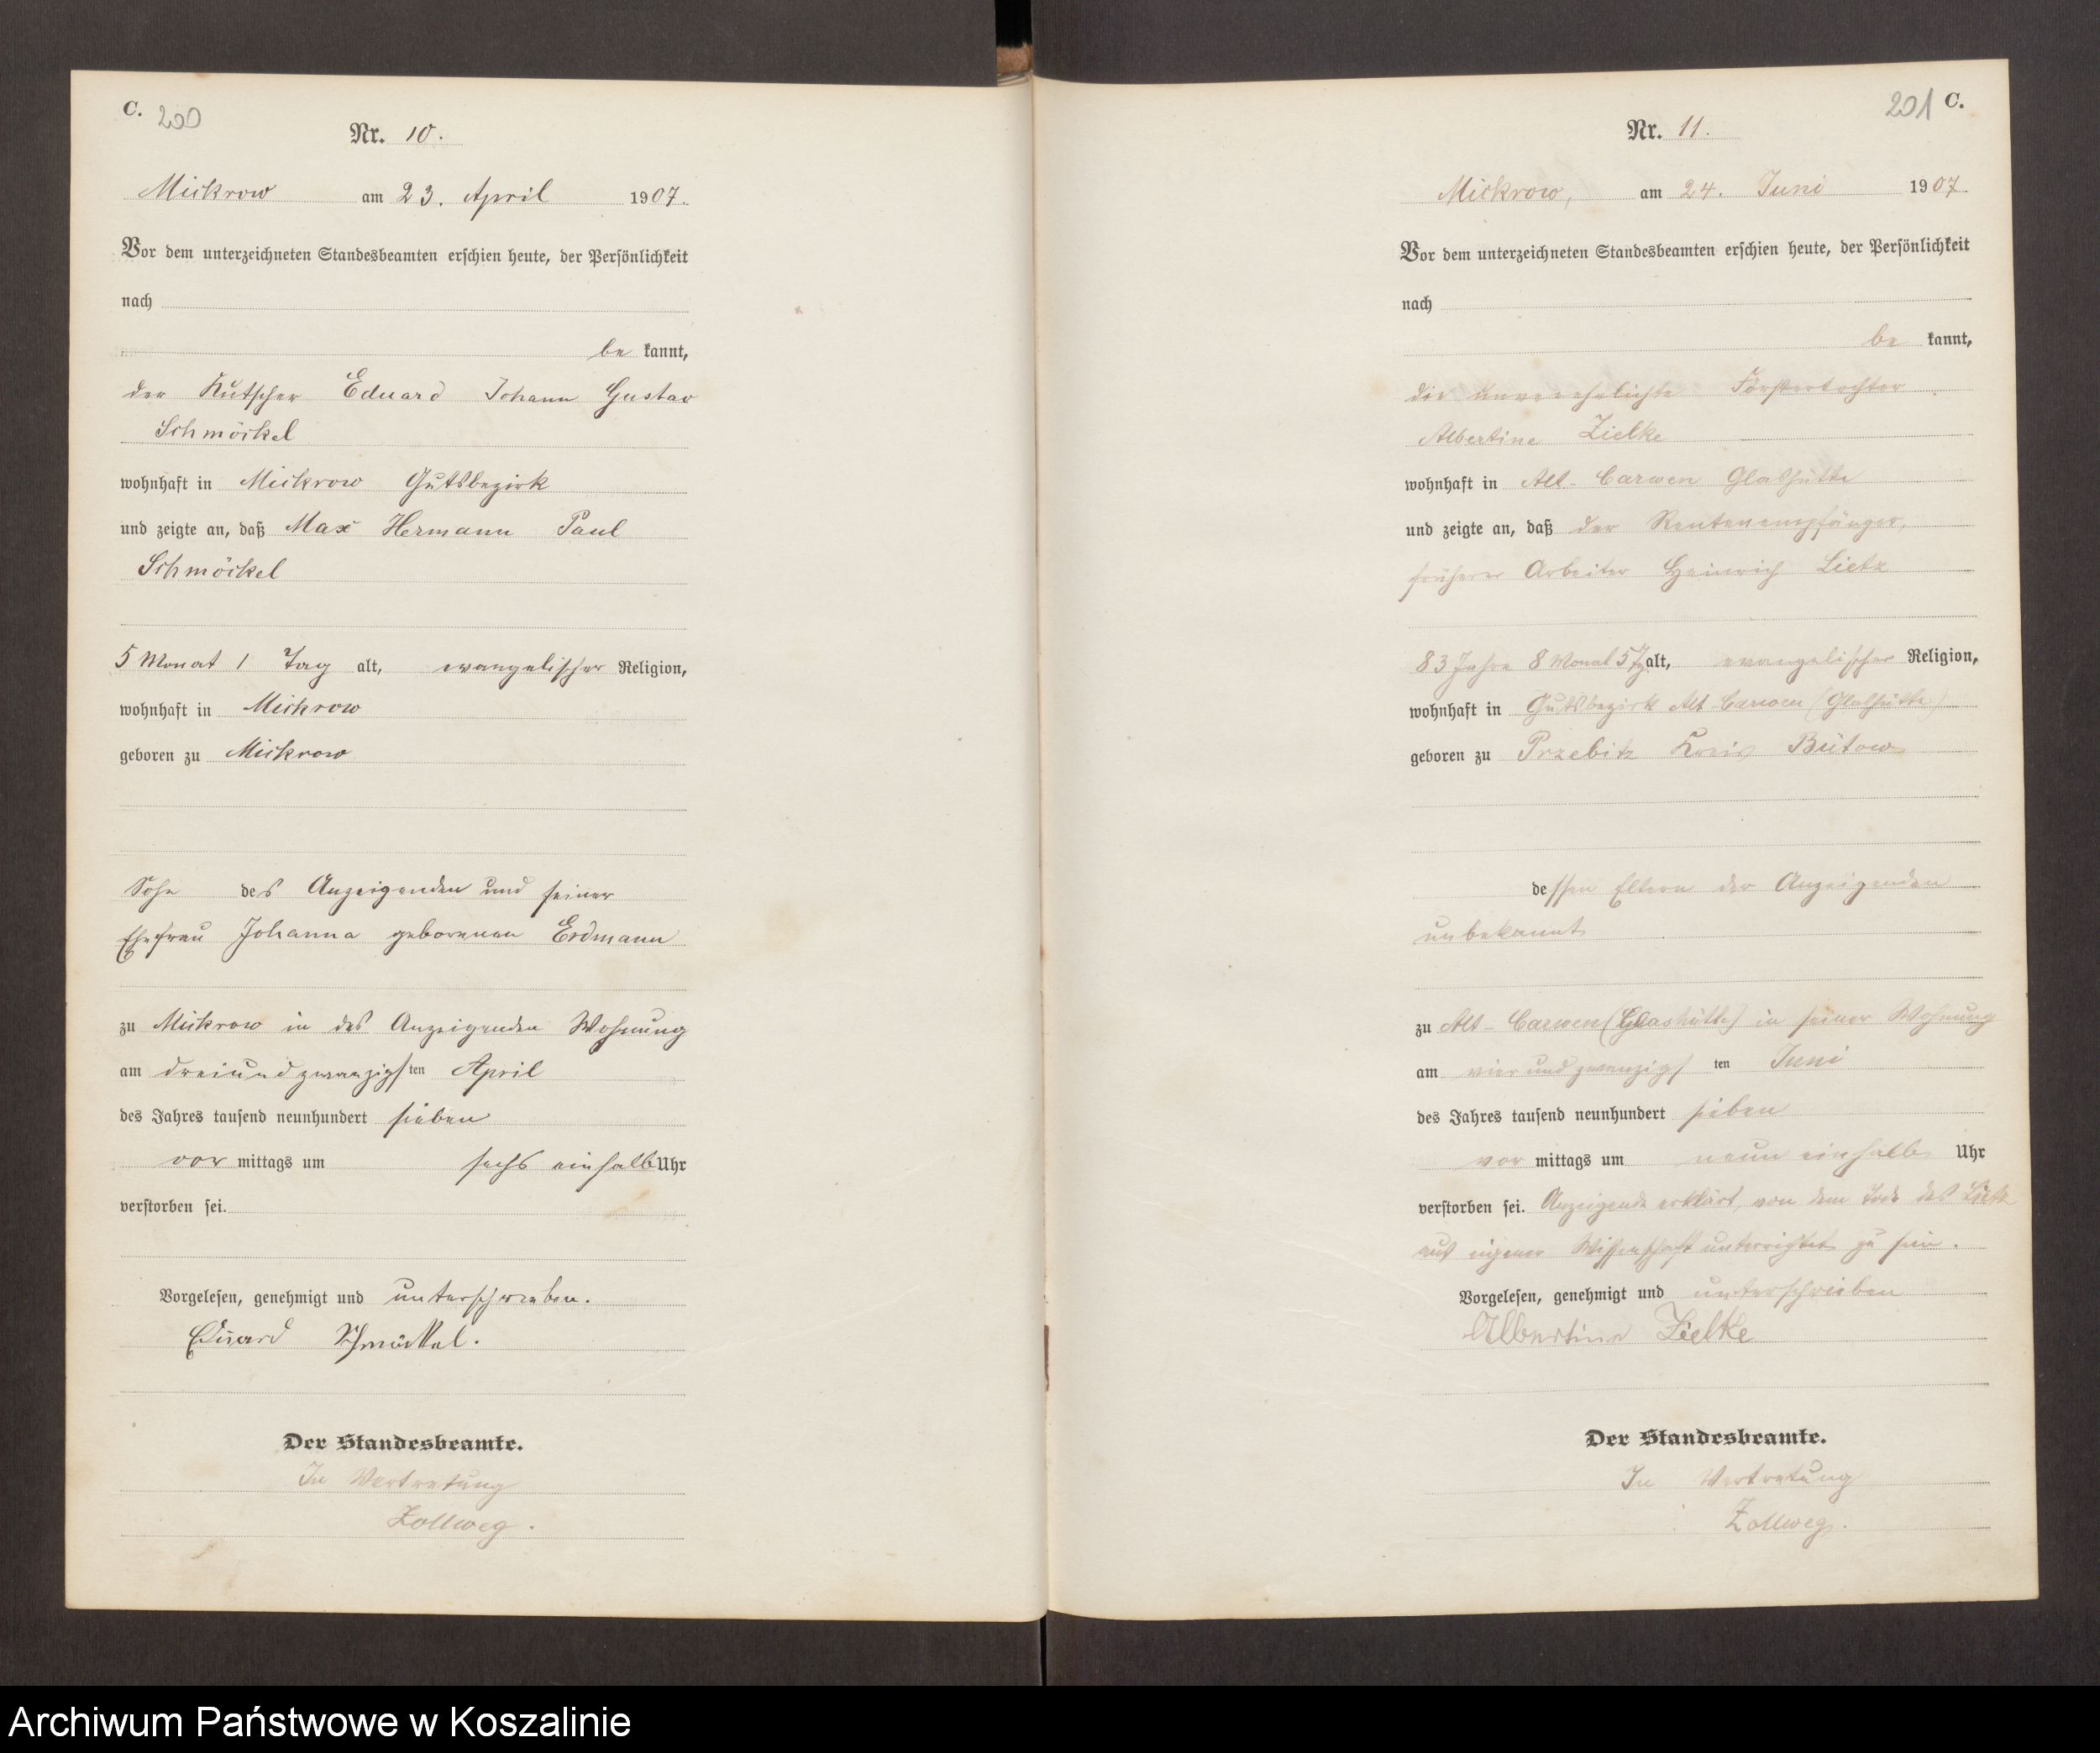 C. 200
Nr. 10.
Mickrow am 23. April 1907.
Vor dem unterzeichneten Standesbeamten erschien heute, der Persönlichkeit
nach
be kannt,
der Kutscher Eduard Johann Gustav
Schmöckel
wohnhaft in Mickrow Gutsbezirk
und zeigte an, daß Max Hermann Paul
Schmöckel
5 Monat 1 Tag alt, evangelischer Religion,
wohnhaft in Mickrow
geboren zu Mickrow
Sohn des Anzeigenden und seiner
Ehefrau Johanna geborenen Erdmann
zu Mickrow in des Anzeigenden Wohnung
am dreiundzwanzigsten April
des Jahres tausend neunhundert sieben
vor mittags um sechs einhalb Uhr
verstorben sei.
Vorgelesen, genehmigt und unterschrieben.
Eduard Schmöckel.
Der Standesbeamte.
In Vertretung
Zollweg.
201 C.
Nr. 11.
Mickrow, am 24. Juni 1907.
Vor dem unterzeichneten Standesbeamten erschien heute, der Persönlichkeit
nach
be kannt,
die unverehelichte Försterstochter
Albertine Zielke
wohnhaft in Alt-Carwen Glashütte
und zeigte an, daß der Rentenempfänger,
früherer Arbeiter Heinrich Lietz
83 Jahre 8 Monat 5 Tg alt, evangelischer Religion,
wohnhaft in Gutsbezirk Alt-Carwen (Glashütte)
geboren zu Przebitz Kreis Bütow
dessen Eltern der Anzeigenden
unbekannt
zu Alt-Carwen (Glashütte) in seiner Wohnung
am vierundzwanzigsten Juni
des Jahres tausend neunhundert sieben
vor mittags um neun einhalb Uhr
verstorben sei. Anzeigende erklärt, von dem Tode des Lietz
aus eigener Wissenschaft unterrichtet zu sein.
Vorgelesen, genehmigt und unterschrieben
Albertine Zielke
Der Standesbeamte.
In Vertretung
Zollweg.
Archiwum Państwowe w Koszalinie